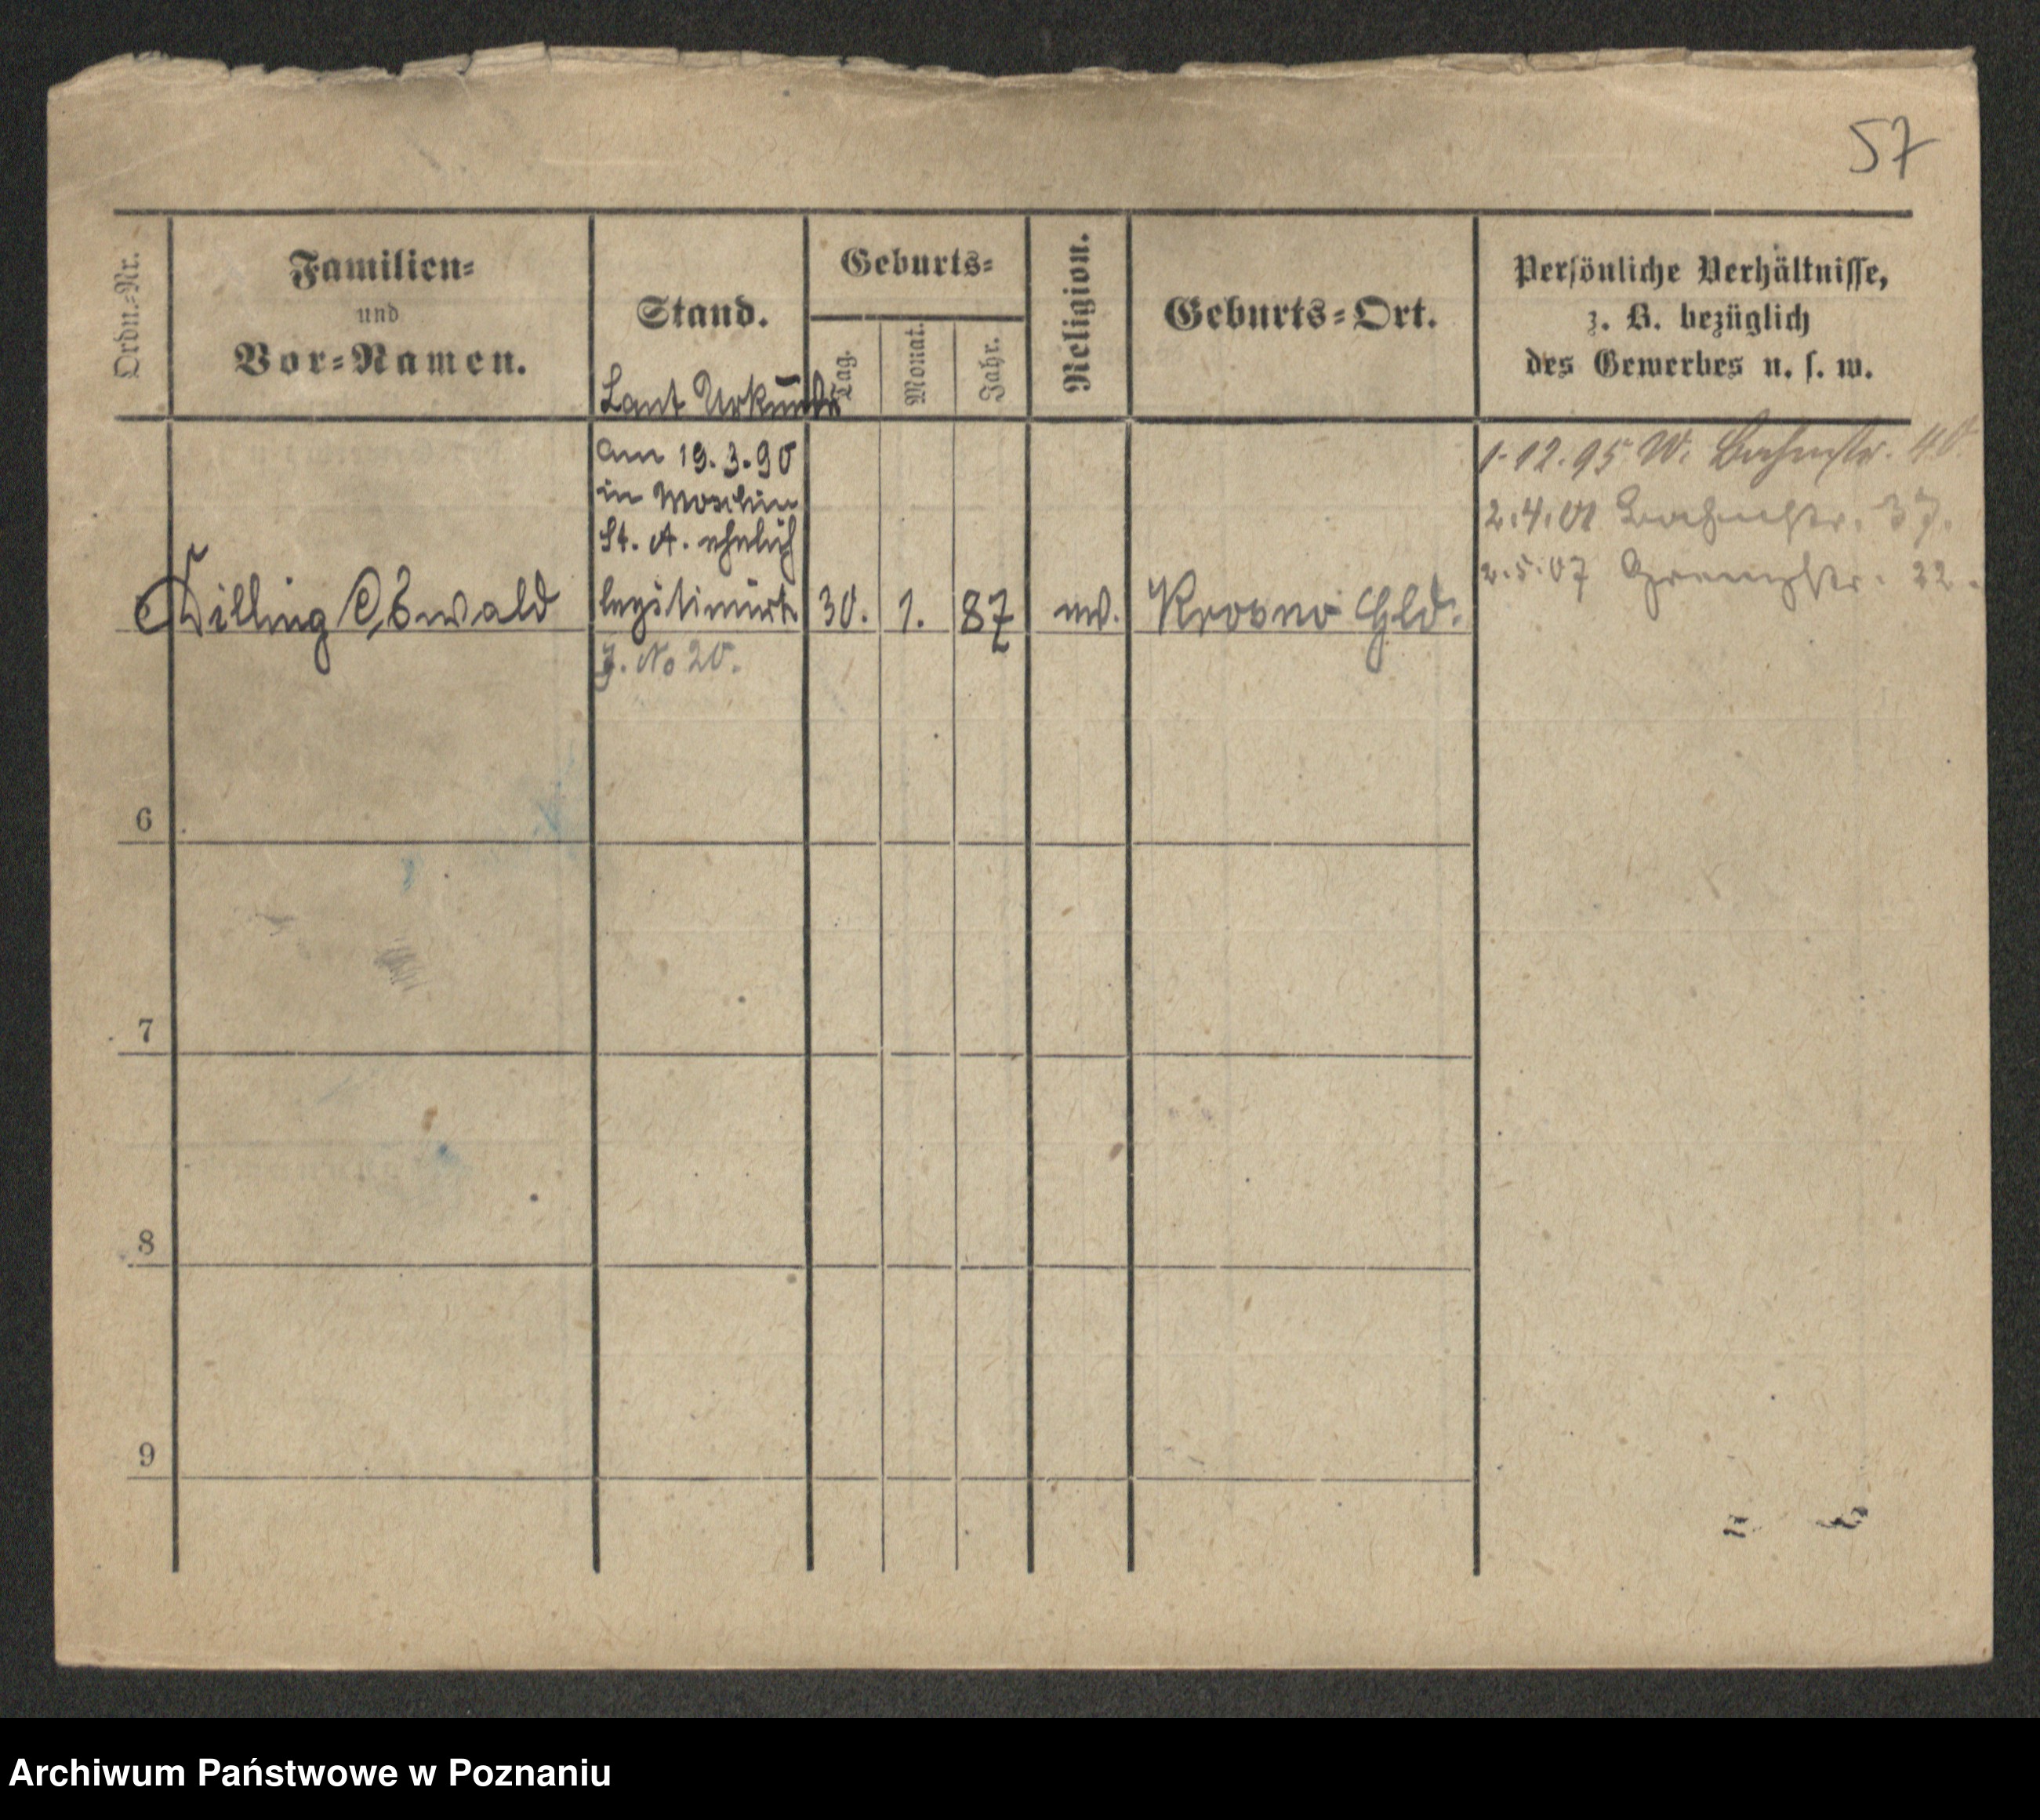 57
Ordn.-Nr.
Familien-
und
Vor-Namen.
Stand.
Geburts-
Tag.
Monat.
Jahr.
Religion.
Geburts-Ort.
Persönliche Verhältnisse,
z. B. bezüglich
des Gewerbes u. s. w.
Laut Urkunde
am 19.3.90
in Moschin
St. A. ehelich
legitimirt.
J. No 20.
Killing Oswald
30.
1.
87
Krosno Hld.
1.12.95 W. Bahnstr. 40.
2.4.01 Bahnstr. 37.
2.5.07 Grenzstr. 22.
6
7
8
9
Archiwum Państwowe w Poznaniu